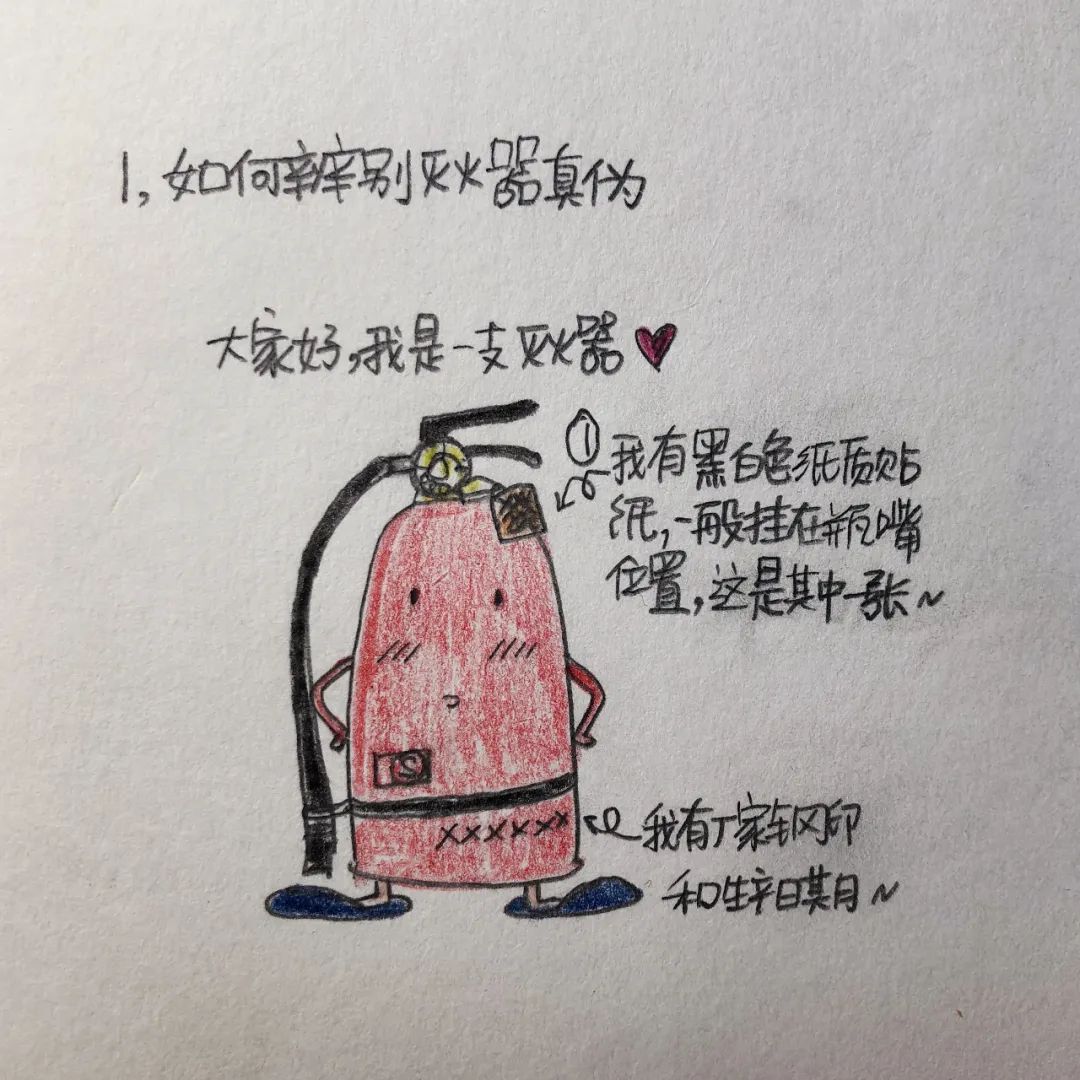 1,如何辨别灭火器真伪
大家好,我是一支灭火器
①
我有黑白色纸质贴
纸,一般挂在瓶嘴
位置,这是其中一张~
②
××××××
我有厂家钢印
和生产日期~